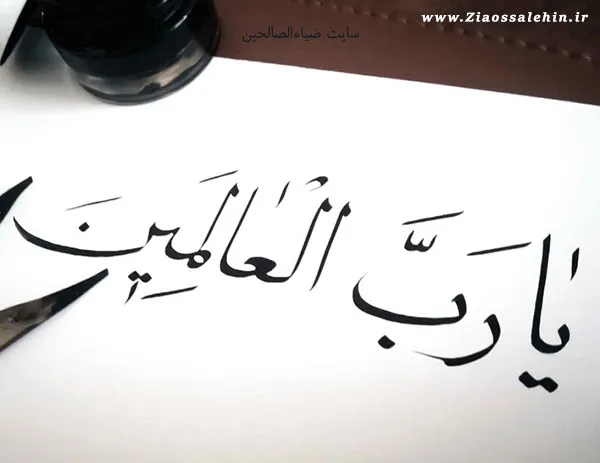 www.Ziaossalehin.ir
سایت ضیاءالصالحین
یٰا رَبَّ الْعٰالَمِینَ